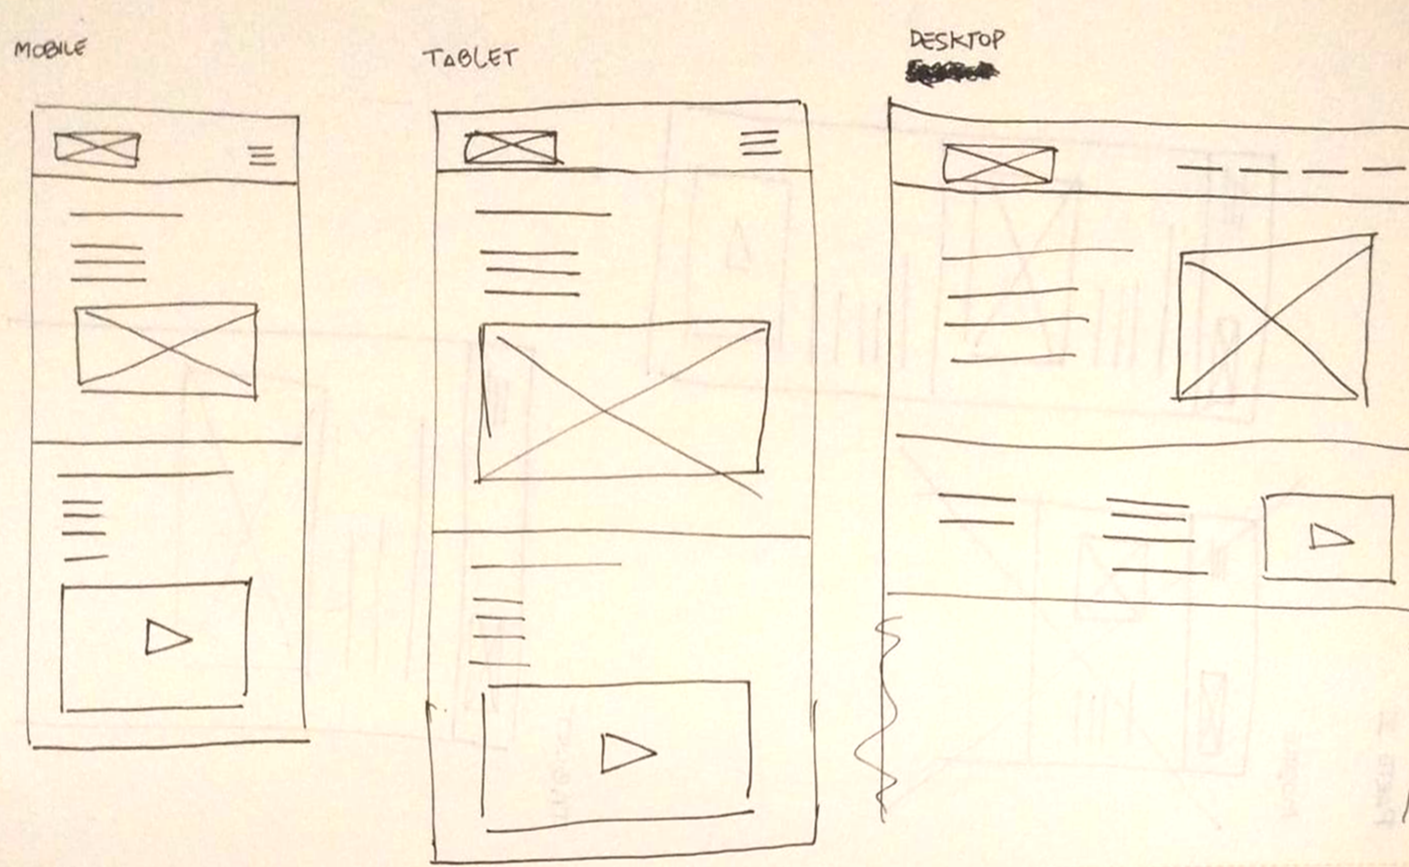 MOBILE
TABLET
DESKTOP